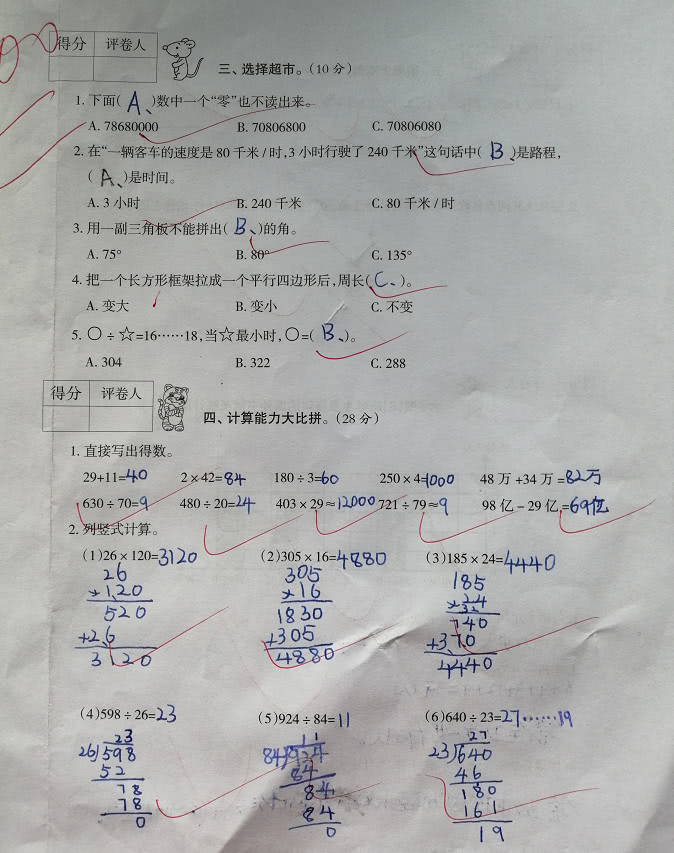 得分 评卷人
三、选择超市。(10分)
1. 下面( A、)数中一个“零”也不读出来。
A. 78680000 B. 70806800 C. 70806080
2. 在“一辆客车的速度是80千米/时,3小时行驶了240千米”这句话中( B、)是路程,
( A、)是时间。
A. 3小时 B. 240千米 C. 80千米/时
3. 用一副三角板不能拼出( B、)的角。
A. 75° B. 80° C. 135°
4. 把一个长方形框架拉成一个平行四边形后,周长( C、)。
A. 变大 B. 变小 C. 不变
5. ○÷☆=16……18,当☆最小时,○=( B、)。
A. 304 B. 322 C. 288
得分 评卷人
四、计算能力大比拼。(28分)
1. 直接写出得数。
29+11=40 2×42=84 180÷3=60 250×4=1000 48万+34万=82万
630÷70=9 480÷20=24 403×29≈12000 721÷79≈9 98亿-29亿=69亿
2. 列竖式计算。
(1)26×120=3120 (2)305×16=4880 (3)185×24=4440
26 305 185
×120 ×16 ×24
520 1830 740
+26 +305 +370
3120 4880 4440
(4)598÷26=23 (5)924÷84=11 (6)640÷23=27……19
23 11 27
26 598 84 924 23 640
52 84 46
78 84 180
78 84 161
0 0 19